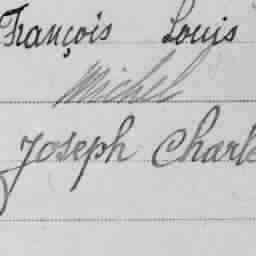 François Louis
Michel
Joseph Charl